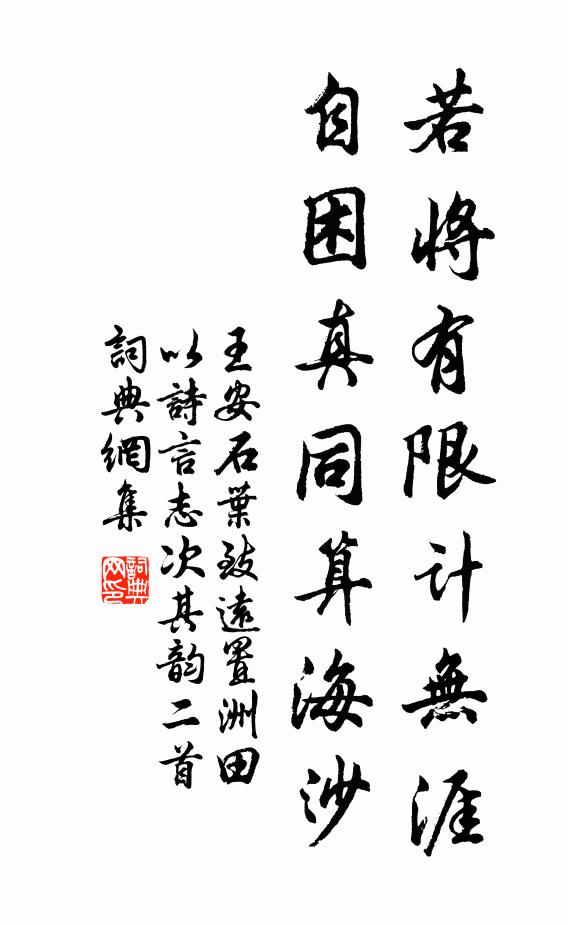 若將有限計無涯
自困真同算海沙
王安石葉致遠置洲田
以詩言志次其韵二首
詞典網集
詞典
网印